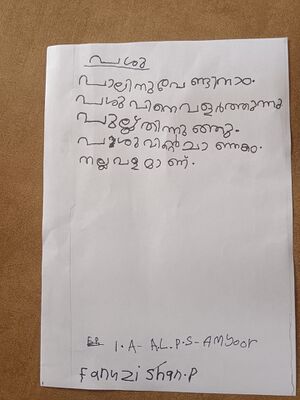 പശു
പാലിനുവേണ്ടിനാം.
പശുവിനെവളർത്തുന്നു
പുല്ല് തിന്നുന്നു.
പശുവിന്റെ ചാണകം.
നല്ല വളമാണ്.
1.A- A.L.P.S- Amyoor
Fanuzi shan.P